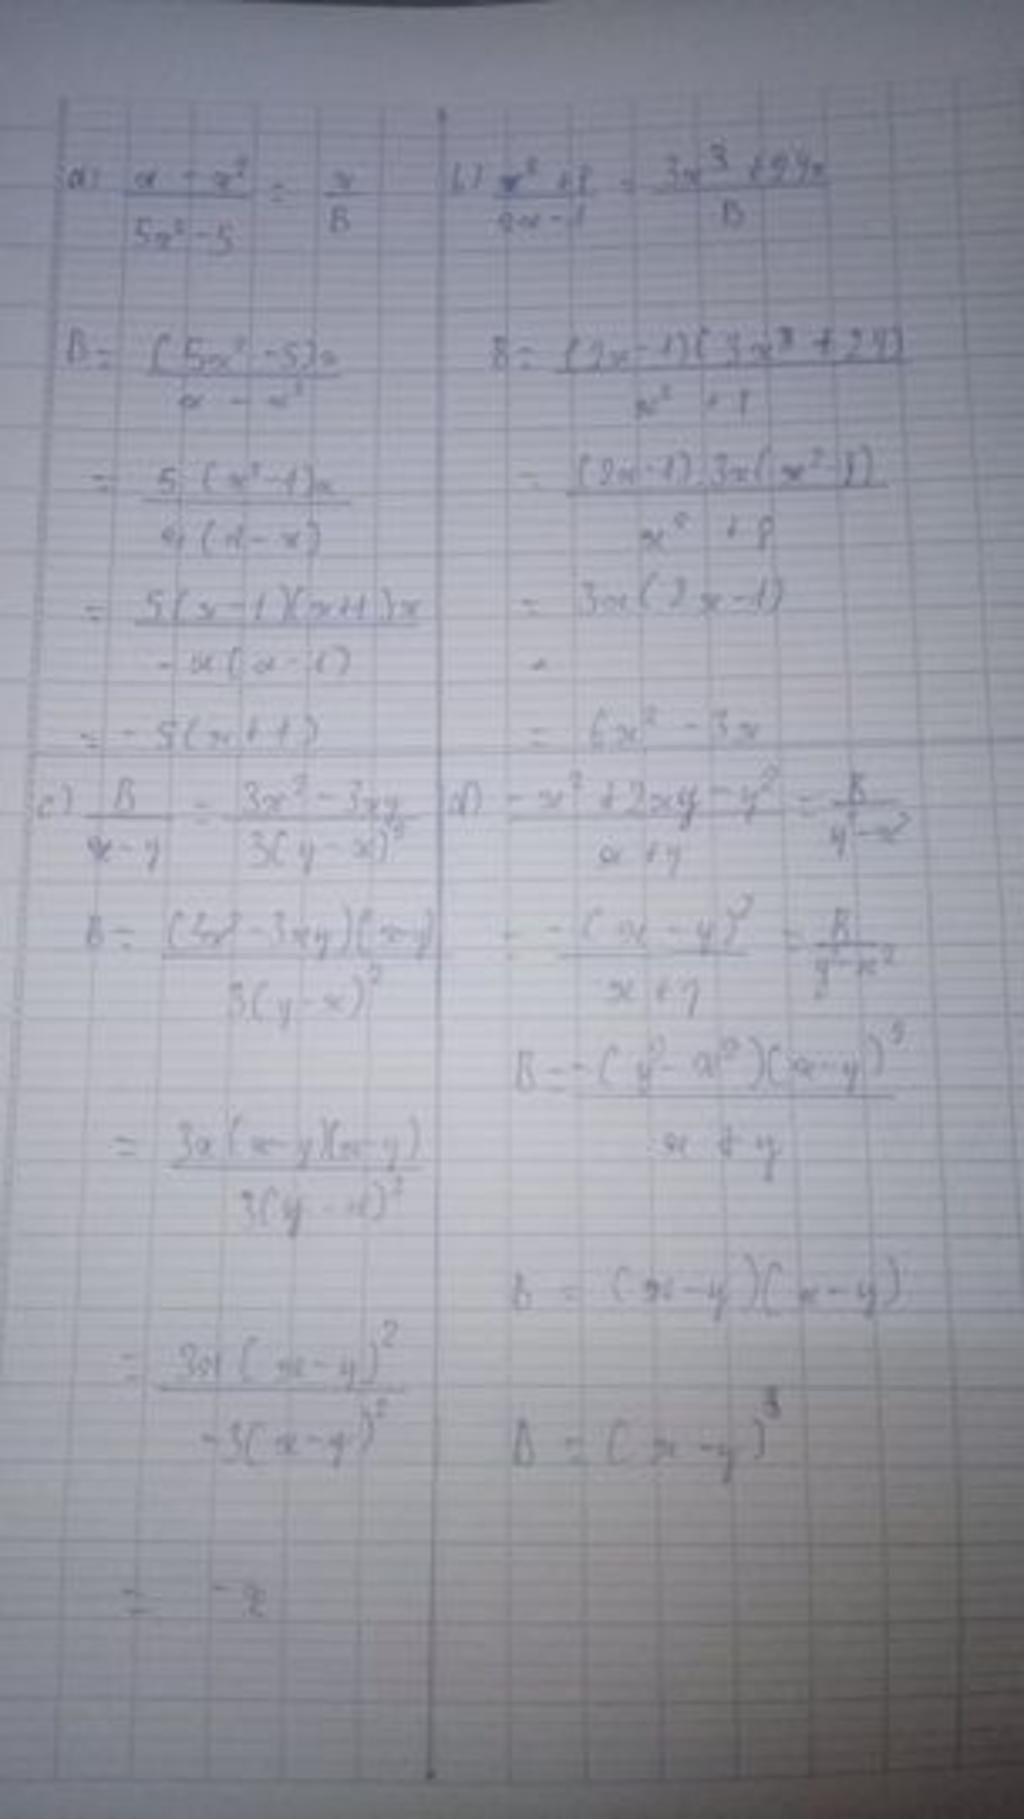 a) (x - x²)/(5x² - 5) = x/B
B = ((5x² - 5)x)/(x - x²)
= (5(x² - 1)x)/(x(1 - x))
= (5(x - 1)(x + 1)x)/(-x(x - 1))
= -5(x + 1)
b) (x² + 8)/(2x - 1) = (3x³ + 24x)/B
B = ((2x - 1)(3x³ + 24))/(x² + 8)
= ((2x - 1).3x(x² - 8))/(x² + 8)
= 3x(2x - 1)
= 6x² - 3x
c) B/(x - y) = (3x² - 3xy)/(3(y - x)²)
B = ((3x² - 3xy)(x - y))/(3(y - x)²)
= (3x(x - y)(x - y))/(3(y - x)²)
= (3x(x - y)²)/(-3(x - y)²)
= -x
d) (-x² + 2xy - y²)/(x + y) = B/(y² - x²)
= (-(x - y)²)/(x + y) = B/(y² - x²)
B = (-(y² - x²)(x - y)²)/(x + y)
B = (x - y)(x - y)
B = (x - y)³